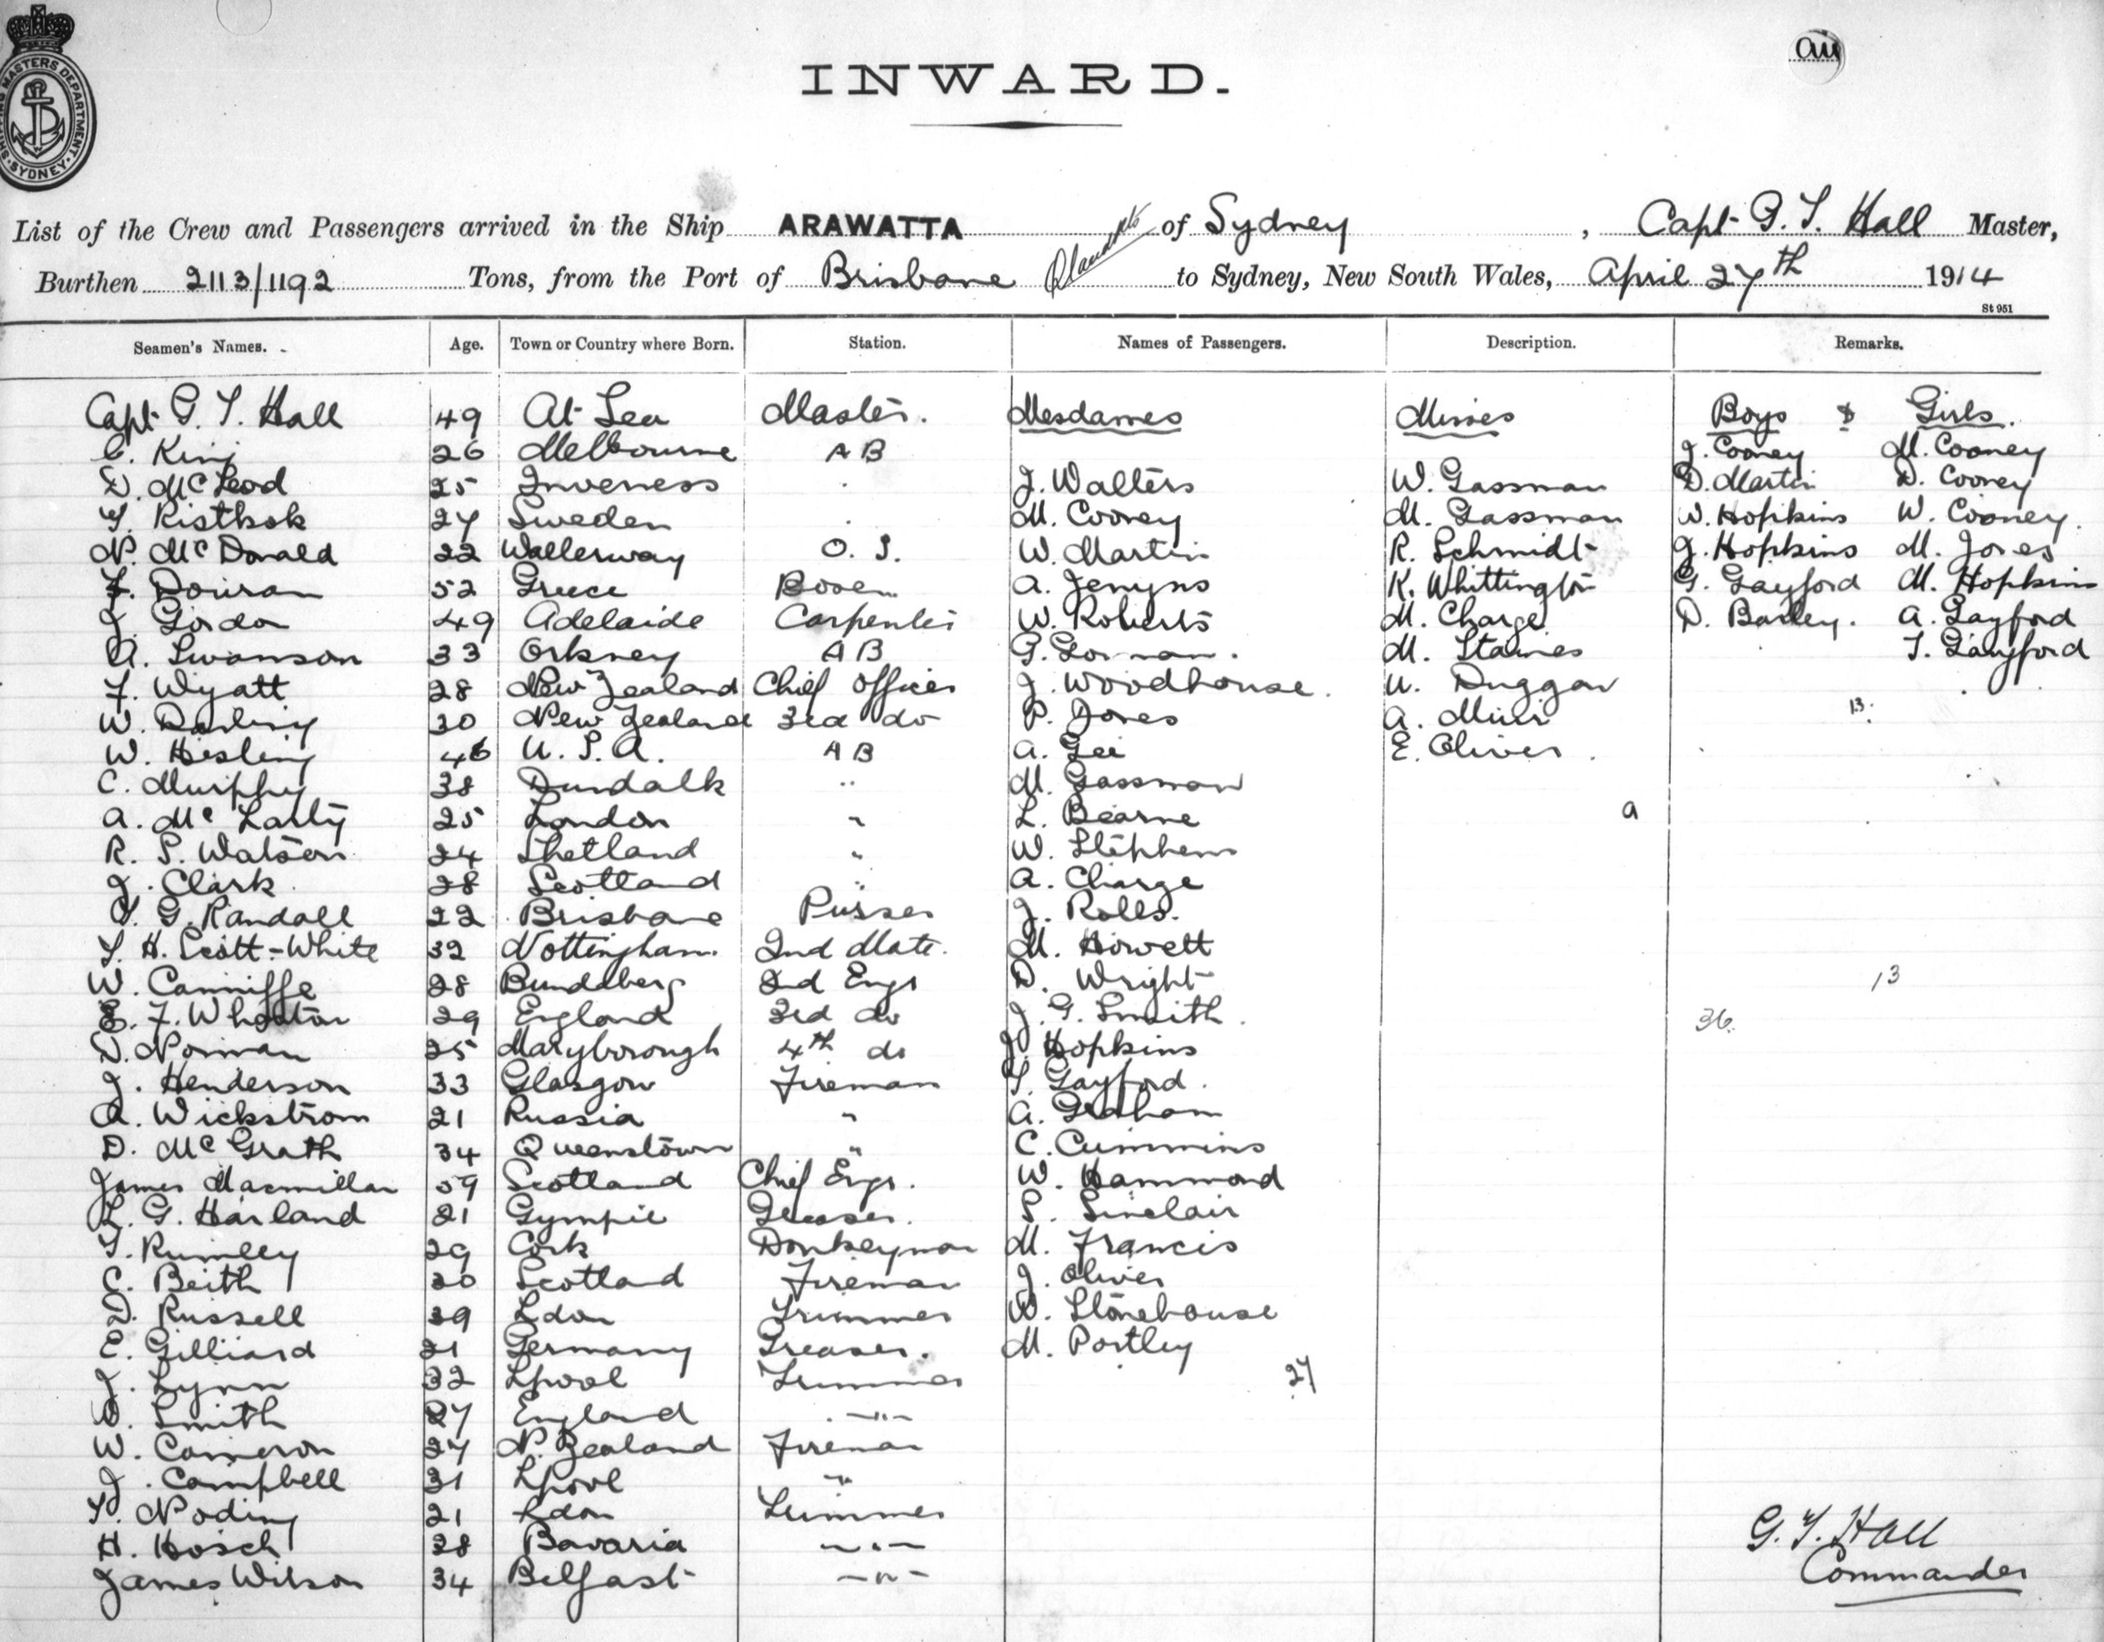 SHIPPING MASTERS DEPARTMENT. SYDNEY.
INWARD.
List of the Crew and Passengers arrived in the Ship ARAWATTA of Sydney, Capt G. T. Hall Master,
Burthen 2113/1192 Tons, from the Port of Brisbane to Sydney, New South Wales, April 27th 1914
St 951
Seamen's Names. Age. Town or Country where Born. Station. Names of Passengers. Description. Remarks.
Capt G. T. Hall 49 At Sea Master. Mesdames Misses Boys & Girls.
C. King 26 Melbourne A B J. Cooney M. Cooney
D. McLeod 25 Inverness J. Walters W. Gassman D. Martin D. Cooney
Ristkok 27 Sweden M. Cooney M. Gassman W. Hopkins W. Cooney.
N. McDonald 22 Wallerway O. S. W. Martin R. Schmidt J. Hopkins M. Jones
Douran 52 Greece Bosen A. Jenyns K. Whittington G. Gayford M. Hopkins
J. Gordon 49 Adelaide Carpenter W. Roberts M. Charge D. Barley. A. Gayford
A. Swanson 33 Orkney A B G. Gorman. M. Staines T. Gayford
F. Wyatt 28 New Zealand Chief Officer J. Woodhouse. U. Duggan
W. Darling 30 New Zealand 3rd do P. Jones A. Muir 13.
W. Hesling 46 U. S. A. A B A. Gee E. Oliver.
C. Murphy 38 Dundalk " M. Gassman
A. McLarty 25 London " L. Bearne 9
R. S. Watson 24 Shetland " W. Stephens
J. Clark 28 Scotland " A. Charge
G. Randall 22 Brisbane Purser J. Rolls.
T. H. Scott-White 32 Nottingham. 2nd Mate. M. Howett
W. Canniffe 28 Bundaberg 2d Engr D. Wright 13
E. F. Whoston 29 England 3rd do J. G. Smith. 36.
D. Norman 25 Maryborough 4th do J. Hopkins
J. Henderson 33 Glasgow Fireman T. Gayford.
A. Wickstrom 21 Russia " A. Graham
D. McGrath 34 Queenstown " C. Cummins
James Macmillan 59 Scotland Chief Engr. W. Hammond
L. G. Harland 21 Gympie Greaser. S. Sinclair
T. Rumley 29 Cork Donkeyman M. Francis
C. Beith 30 Scotland Fireman J. Oliver
D. Russell 39 Ldon Trimmer W. Stonehouse
E. Gilliard 21 Germany Greaser. M. Portley
J. Lynn 32 Lpool Trimmer 27
W. Smith 27 England -"-
W. Cameron 27 N. Zealand Fireman
J. Campbell 31 Lpool "
T. Noding 21 Ldon Trimmer
H. Hosch 28 Bavaria -"-
James Wilson 34 Belfast -"-
G. T. Hall
Commander